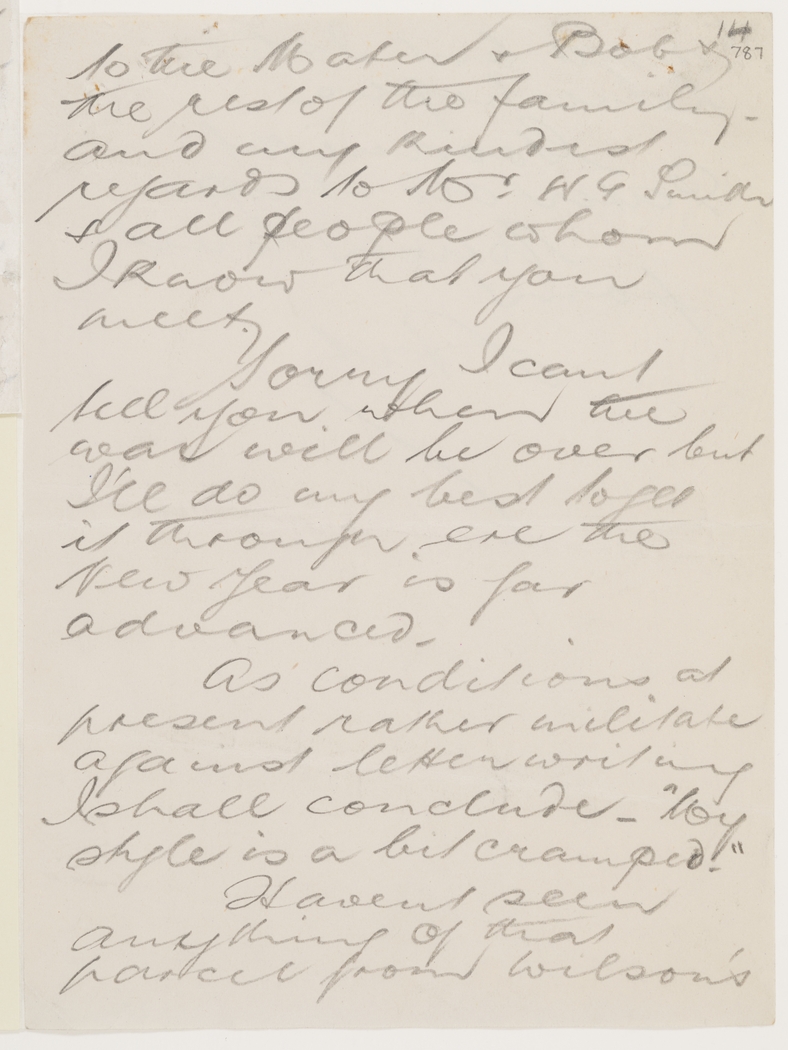 14
787
to the Mater & Bob &
the rest of the family -
and my kindest
regards to Mr. H G Smith
& all people whom
I know that you
meet.
Sorry I cant
tell you when the
war will be over but
I'll do my best to get
it through ere the
New Year is far
advanced.
As conditions at
present rather militate
against letter writing
I shall conclude - "My
style is a bit cramped."
Havent seen
anything of that
parcel from Wilson's